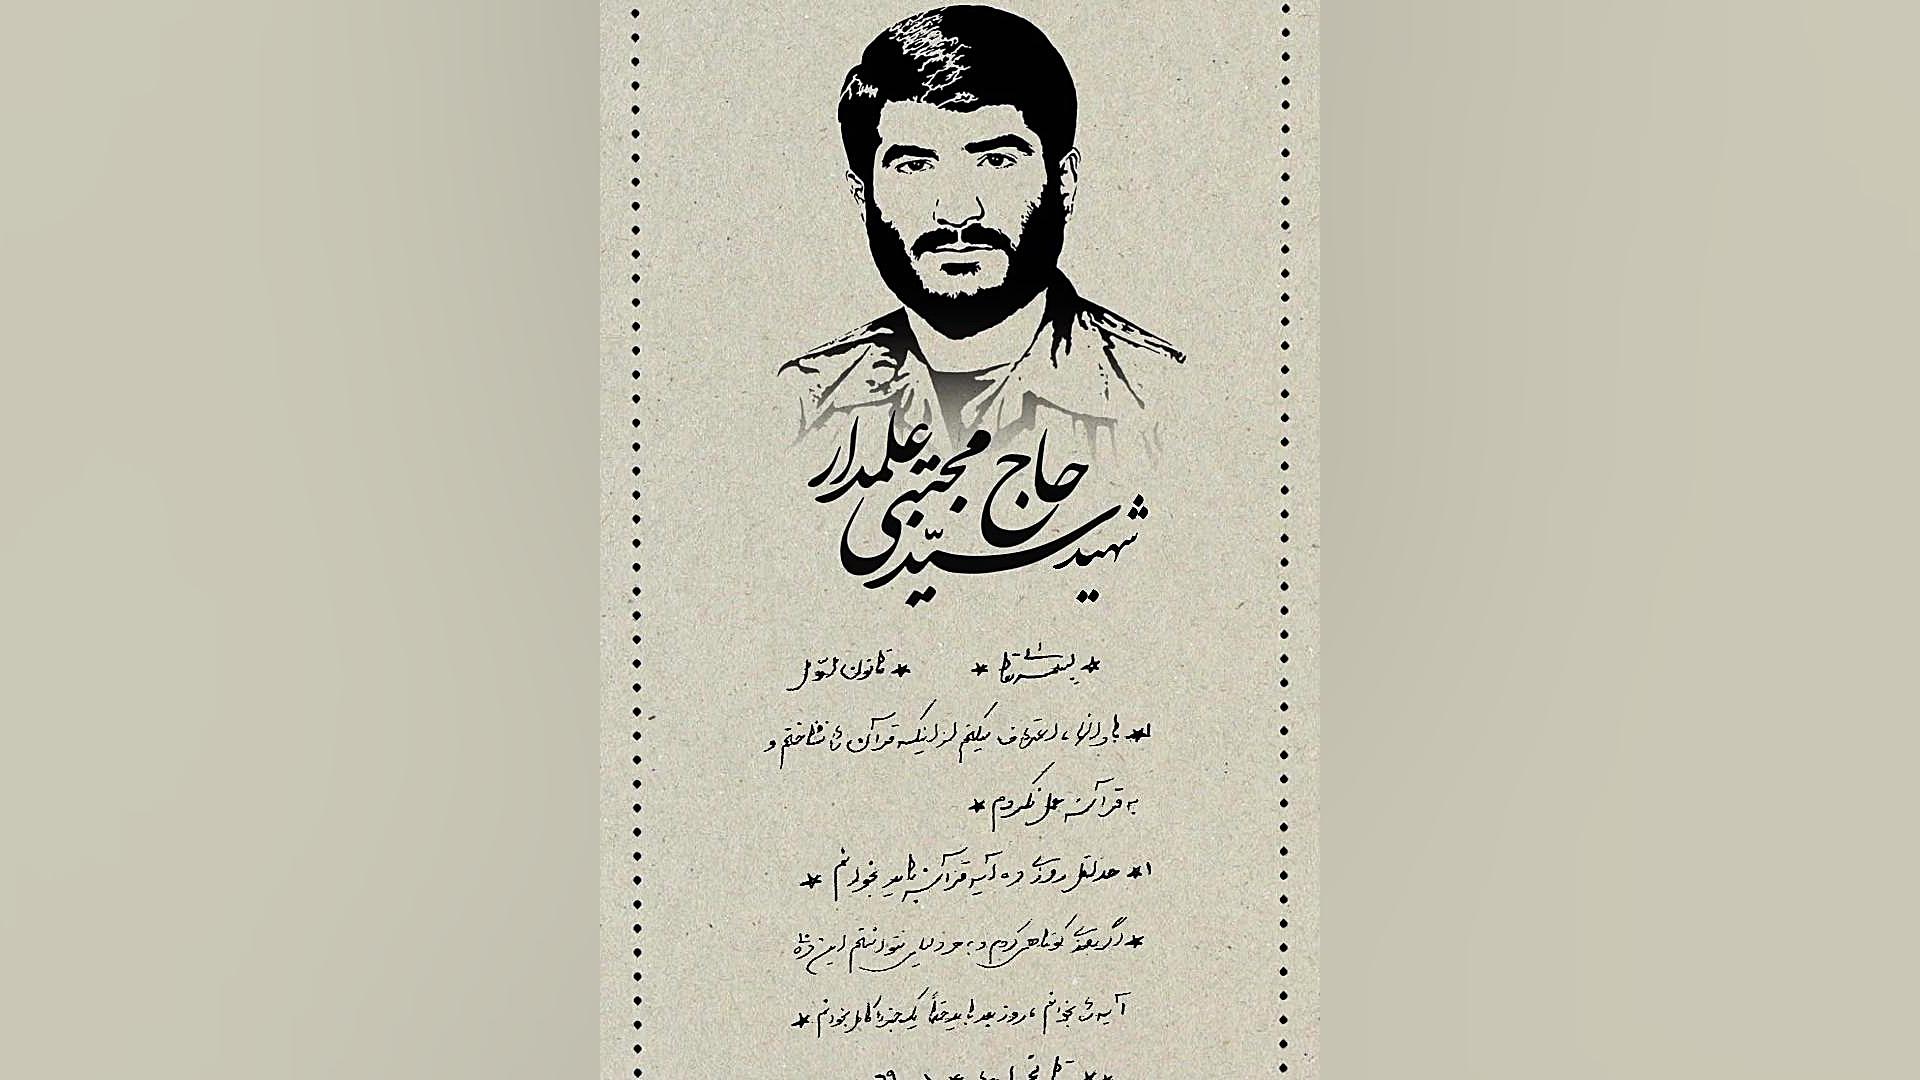 شهید سیّد
حاج مجتبی علمدار
* بسمه تعالی * * قانون اوّل
* با و اعتراف میکنم از اینکه قرآن را نشناختم و
به قرآن عمل نکردم *
۱* حداقل روزی ده آیه قرآن باید بخوانم *
* اگر روزی کوتاهی کردم و به هر دلیلی نتوانستم این ده
آیه را بخوانم ، روز بعد باید حتماً یک جزء کامل بخوانم *